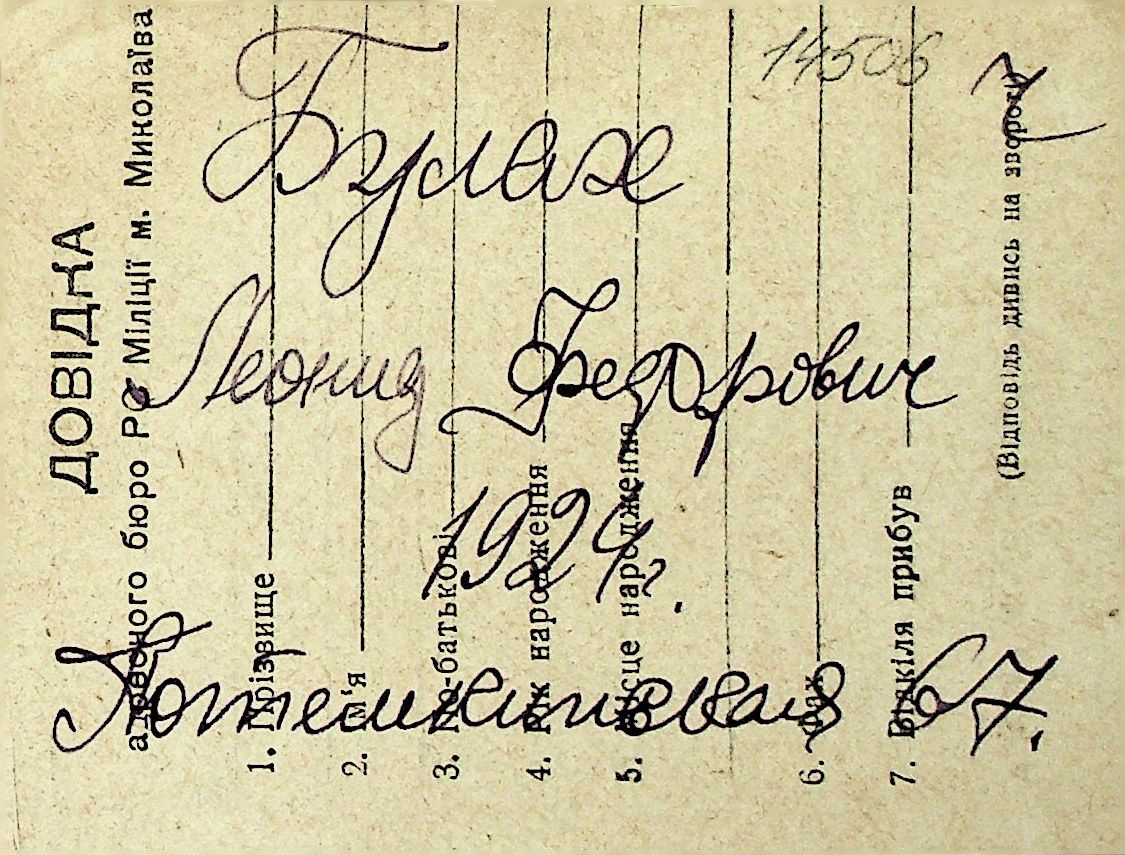 14506
7
Булах
Леонид Федорович
1924 г.
Потемкинская 67.
ДОВІДКА
адресного бюро РО Міліції м. Миколаїва
1. Прізвище
2. Ім'я
3. По-батькові
4. Рік народження
5. Місце народження
6. Фах
7. Відкіля прибув
(Відповідь дивись на звороті)